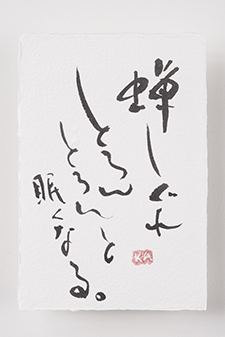 蝉しぐれ
とろん
とろんと
眠くなる。